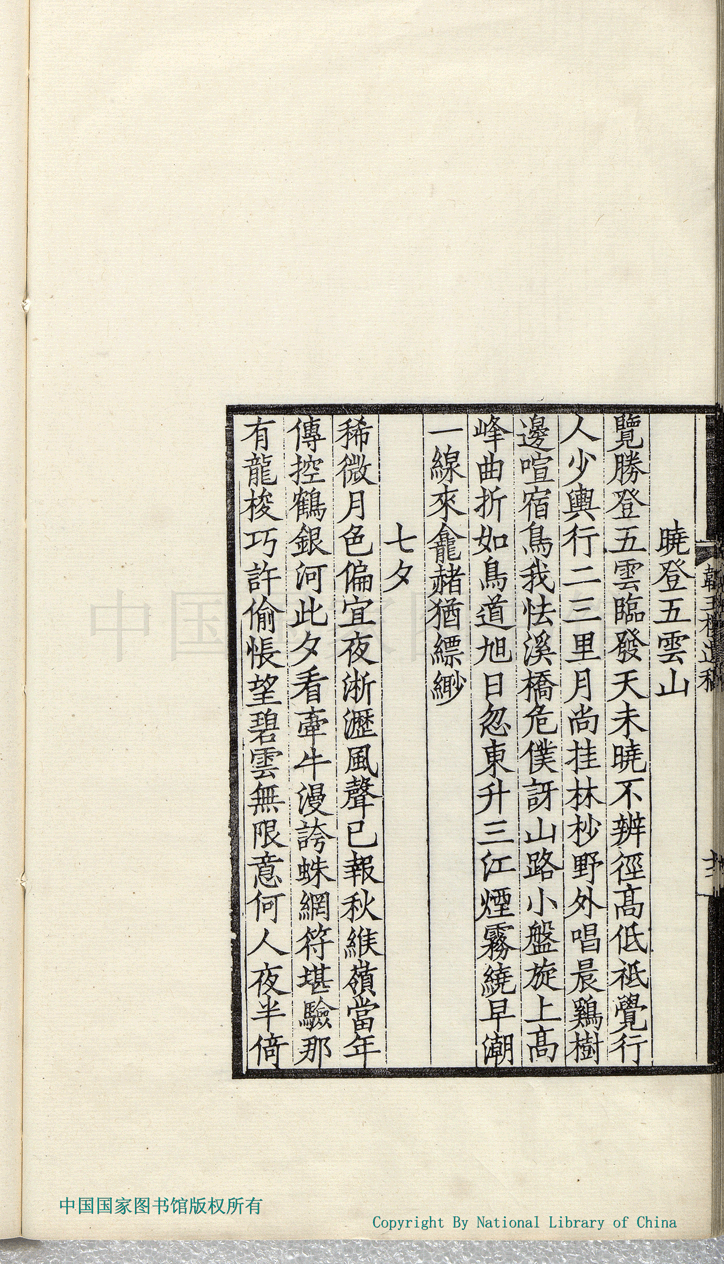 曉登五雲山
覽勝登五雲臨發天未曉不辨徑高低祗覺行
人少輿行二三里月尚挂林杪野外唱晨鷄樹
邊喧宿鳥我怯溪橋危僕訝山路小盤旋上高
峰曲折如鳥道旭日忽東升三江煙霧繞早潮
一線來龕赭猶縹緲
七夕
稀微月色偏宜夜淅瀝風聲已報秋緱嶺當年
傳控鶴銀河此夕看牽牛漫誇蛛網符堪驗那
有龍梭巧許偷悵望碧雲無限意何人夜半倚
中国国家图书馆版权所有
Copyright By National Library of China